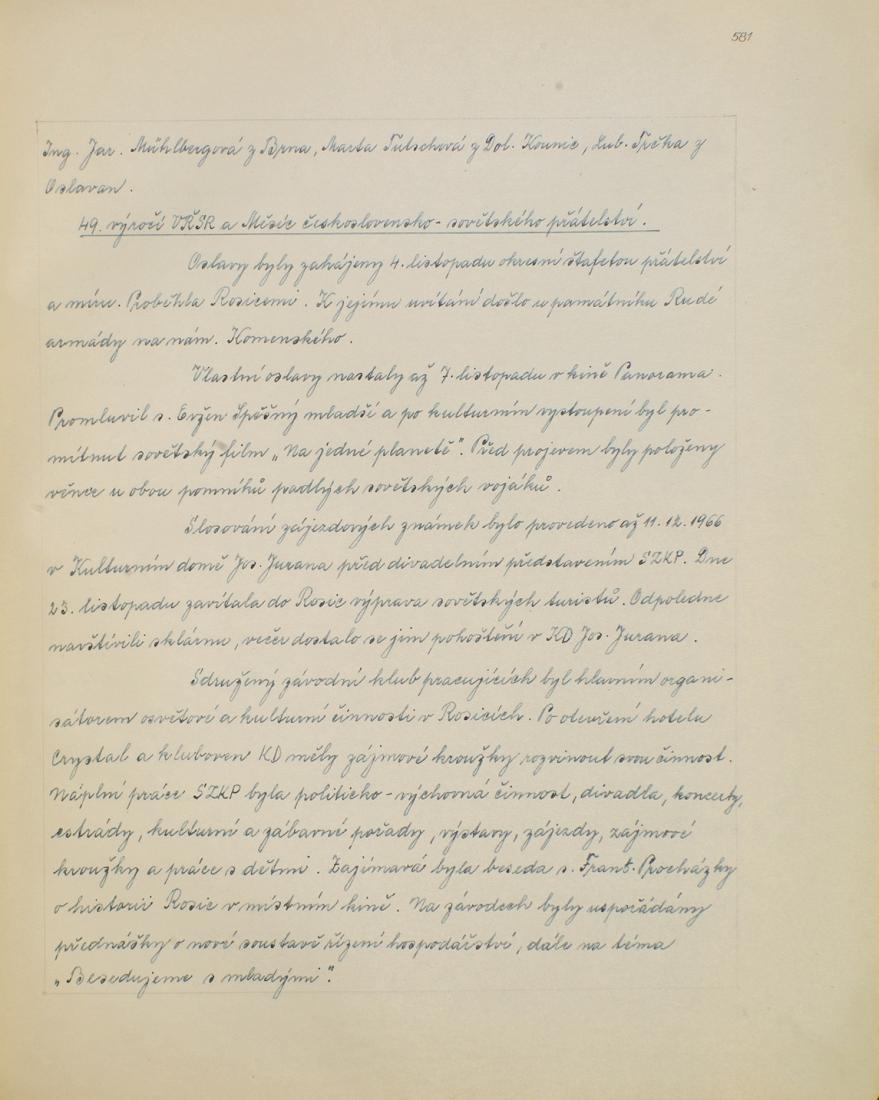 581
Ing. Jar. Mühlbergová z Brna, Marta Tutschová z Dol. Kounic, Lub. Trčka z
Oslavan.
49. výročí VŘSR a Měsíc československo-sovětského přátelství.
Oslavy byly zahájeny 4. listopadu okresní štafetou přátelství
a míru. Proběhla Rosicemi. K jejímu uvítání došlo u památníku Rudé
armády na nám. Komenského.
Vlastní oslavy nastaly až 7. listopadu v kině Panorama.
Promluvil s. Evžen Spěšný mladší a po kulturním vystoupení byl pro-
mítnut sovětský film „Na jedné planetě". Před projevem byly položeny
věnce u obou pomníků padlých sovětských vojáků.
Slosování zájezdových známek bylo provedeno až 11. 12. 1966
v Kulturním domě Jos. Jurana před divadelním představením SZKP. Dne
23. listopadu zavítala do Rosic výprava sovětských turistů. Odpoledne
navštívili sklárnu, večer dostalo se jim pohoštění v KD Jos. Jurana.
Sdružený závodní klub pracujících byl hlavním organi-
sátorem osvětové a kulturní činnosti v Rosicích. Po otevření hotelu
Crystal a kluboven KD měly zájmové kroužky rozvinout svou činnost.
Náplní práce SZKP byla politicko-výchovná činnost, divadla, koncerty,
estrády, kulturní a zábavné pořady, výstavy, zájezdy, zájmové
kroužky a práce s dětmi. Zajímavá byla beseda s. Frant. Procházky
o historii Rosic v místním kině. Na závodech byly uspořádány
přednášky o nové soustavě řízení hospodářství, dále na téma
„Besedujeme s mladými".